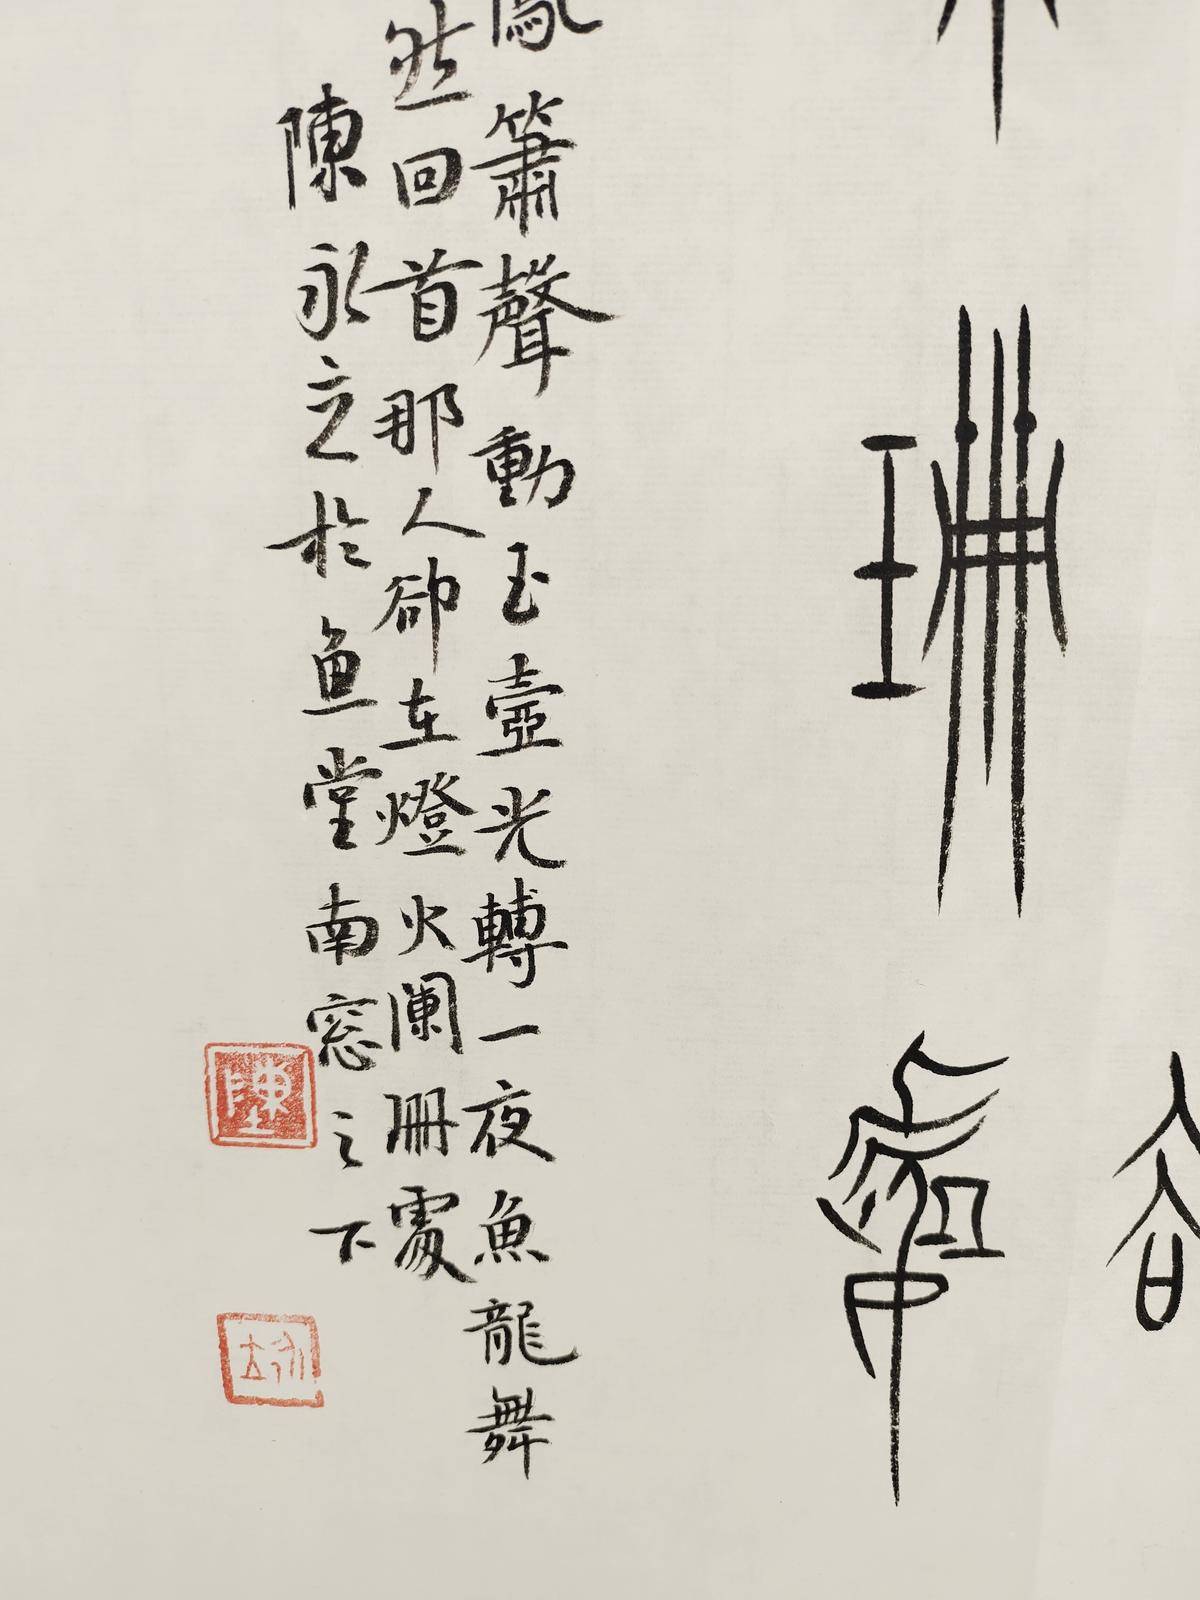 鳳簫聲動玉壺光轉一夜魚龍舞
然回首那人卻在燈火闌珊處
陳永之於魚堂南窓之下
珊處
陳